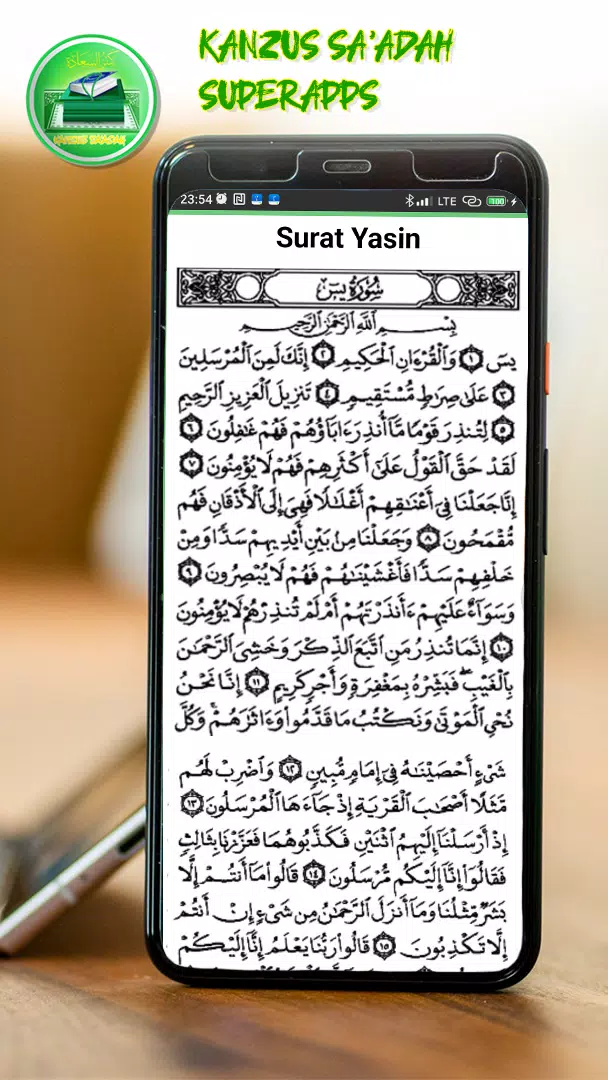 KANZUS SA'ADAH
SUPERAPPS
كنز السعادة
KANZUS SA'ADAH
23:54
LTE
100
Surat Yasin
سُورَةُ يسٓ
بِسْمِ اللَّهِ الرَّحْمَٰنِ الرَّحِيمِ
يسٓ ١ وَالْقُرْءَانِ الْحَكِيمِ ٢ إِنَّكَ لَمِنَ الْمُرْسَلِينَ
٣ عَلَىٰ صِرَاطٍ مُّسْتَقِيمٍ ٤ تَنزِيلَ الْعَزِيزِ الرَّحِيمِ
٥ لِتُنذِرَ قَوْمًا مَّا أُنذِرَ ءَابَاؤُهُمْ فَهُمْ غَٰفِلُونَ ٦
لَقَدْ حَقَّ الْقَوْلُ عَلَىٰ أَكْثَرِهِمْ فَهُمْ لَا يُؤْمِنُونَ ٧
إِنَّا جَعَلْنَا فِى أَعْنَٰقِهِمْ أَغْلَٰلًا فَهِىَ إِلَى الْأَذْقَانِ فَهُم
مُّقْمَحُونَ ٨ وَجَعَلْنَا مِنۢ بَيْنِ أَيْدِيهِمْ سَدًّا وَمِنْ
خَلْفِهِمْ سَدًّا فَأَغْشَيْنَٰهُمْ فَهُمْ لَا يُبْصِرُونَ ٩
وَسَوَآءٌ عَلَيْهِمْ ءَأَنذَرْتَهُمْ أَمْ لَمْ تُنذِرْهُمْ لَا يُؤْمِنُونَ
١٠ إِنَّمَا تُنذِرُ مَنِ اتَّبَعَ الذِّكْرَ وَخَشِىَ الرَّحْمَٰنَ
بِالْغَيْبِ ۖ فَبَشِّرْهُ بِمَغْفِرَةٍ وَأَجْرٍ كَرِيمٍ ١١ إِنَّا نَحْنُ
نُحْىِ الْمَوْتَىٰ وَنَكْتُبُ مَا قَدَّمُوا وَءَاثَٰرَهُمْ ۚ وَكُلَّ
شَىْءٍ أَحْصَيْنَٰهُ فِى إِمَامٍ مُّبِينٍ ١٢ وَاضْرِبْ لَهُم
مَّثَلًا أَصْحَٰبَ الْقَرْيَةِ إِذْ جَآءَهَا الْمُرْسَلُونَ ١٣
إِذْ أَرْسَلْنَا إِلَيْهِمُ اثْنَيْنِ فَكَذَّبُوهُمَا فَعَزَّزْنَا بِثَالِثٍ
فَقَالُوا إِنَّا إِلَيْكُم مُّرْسَلُونَ ١٤ قَالُوا مَا أَنتُمْ إِلَّا
بَشَرٌ مِّثْلُنَا وَمَا أَنزَلَ الرَّحْمَٰنُ مِن شَىْءٍ إِنْ أَنتُمْ
إِلَّا تَكْذِبُونَ ١٥ قَالُوا رَبُّنَا يَعْلَمُ إِنَّا إِلَيْكُمْ